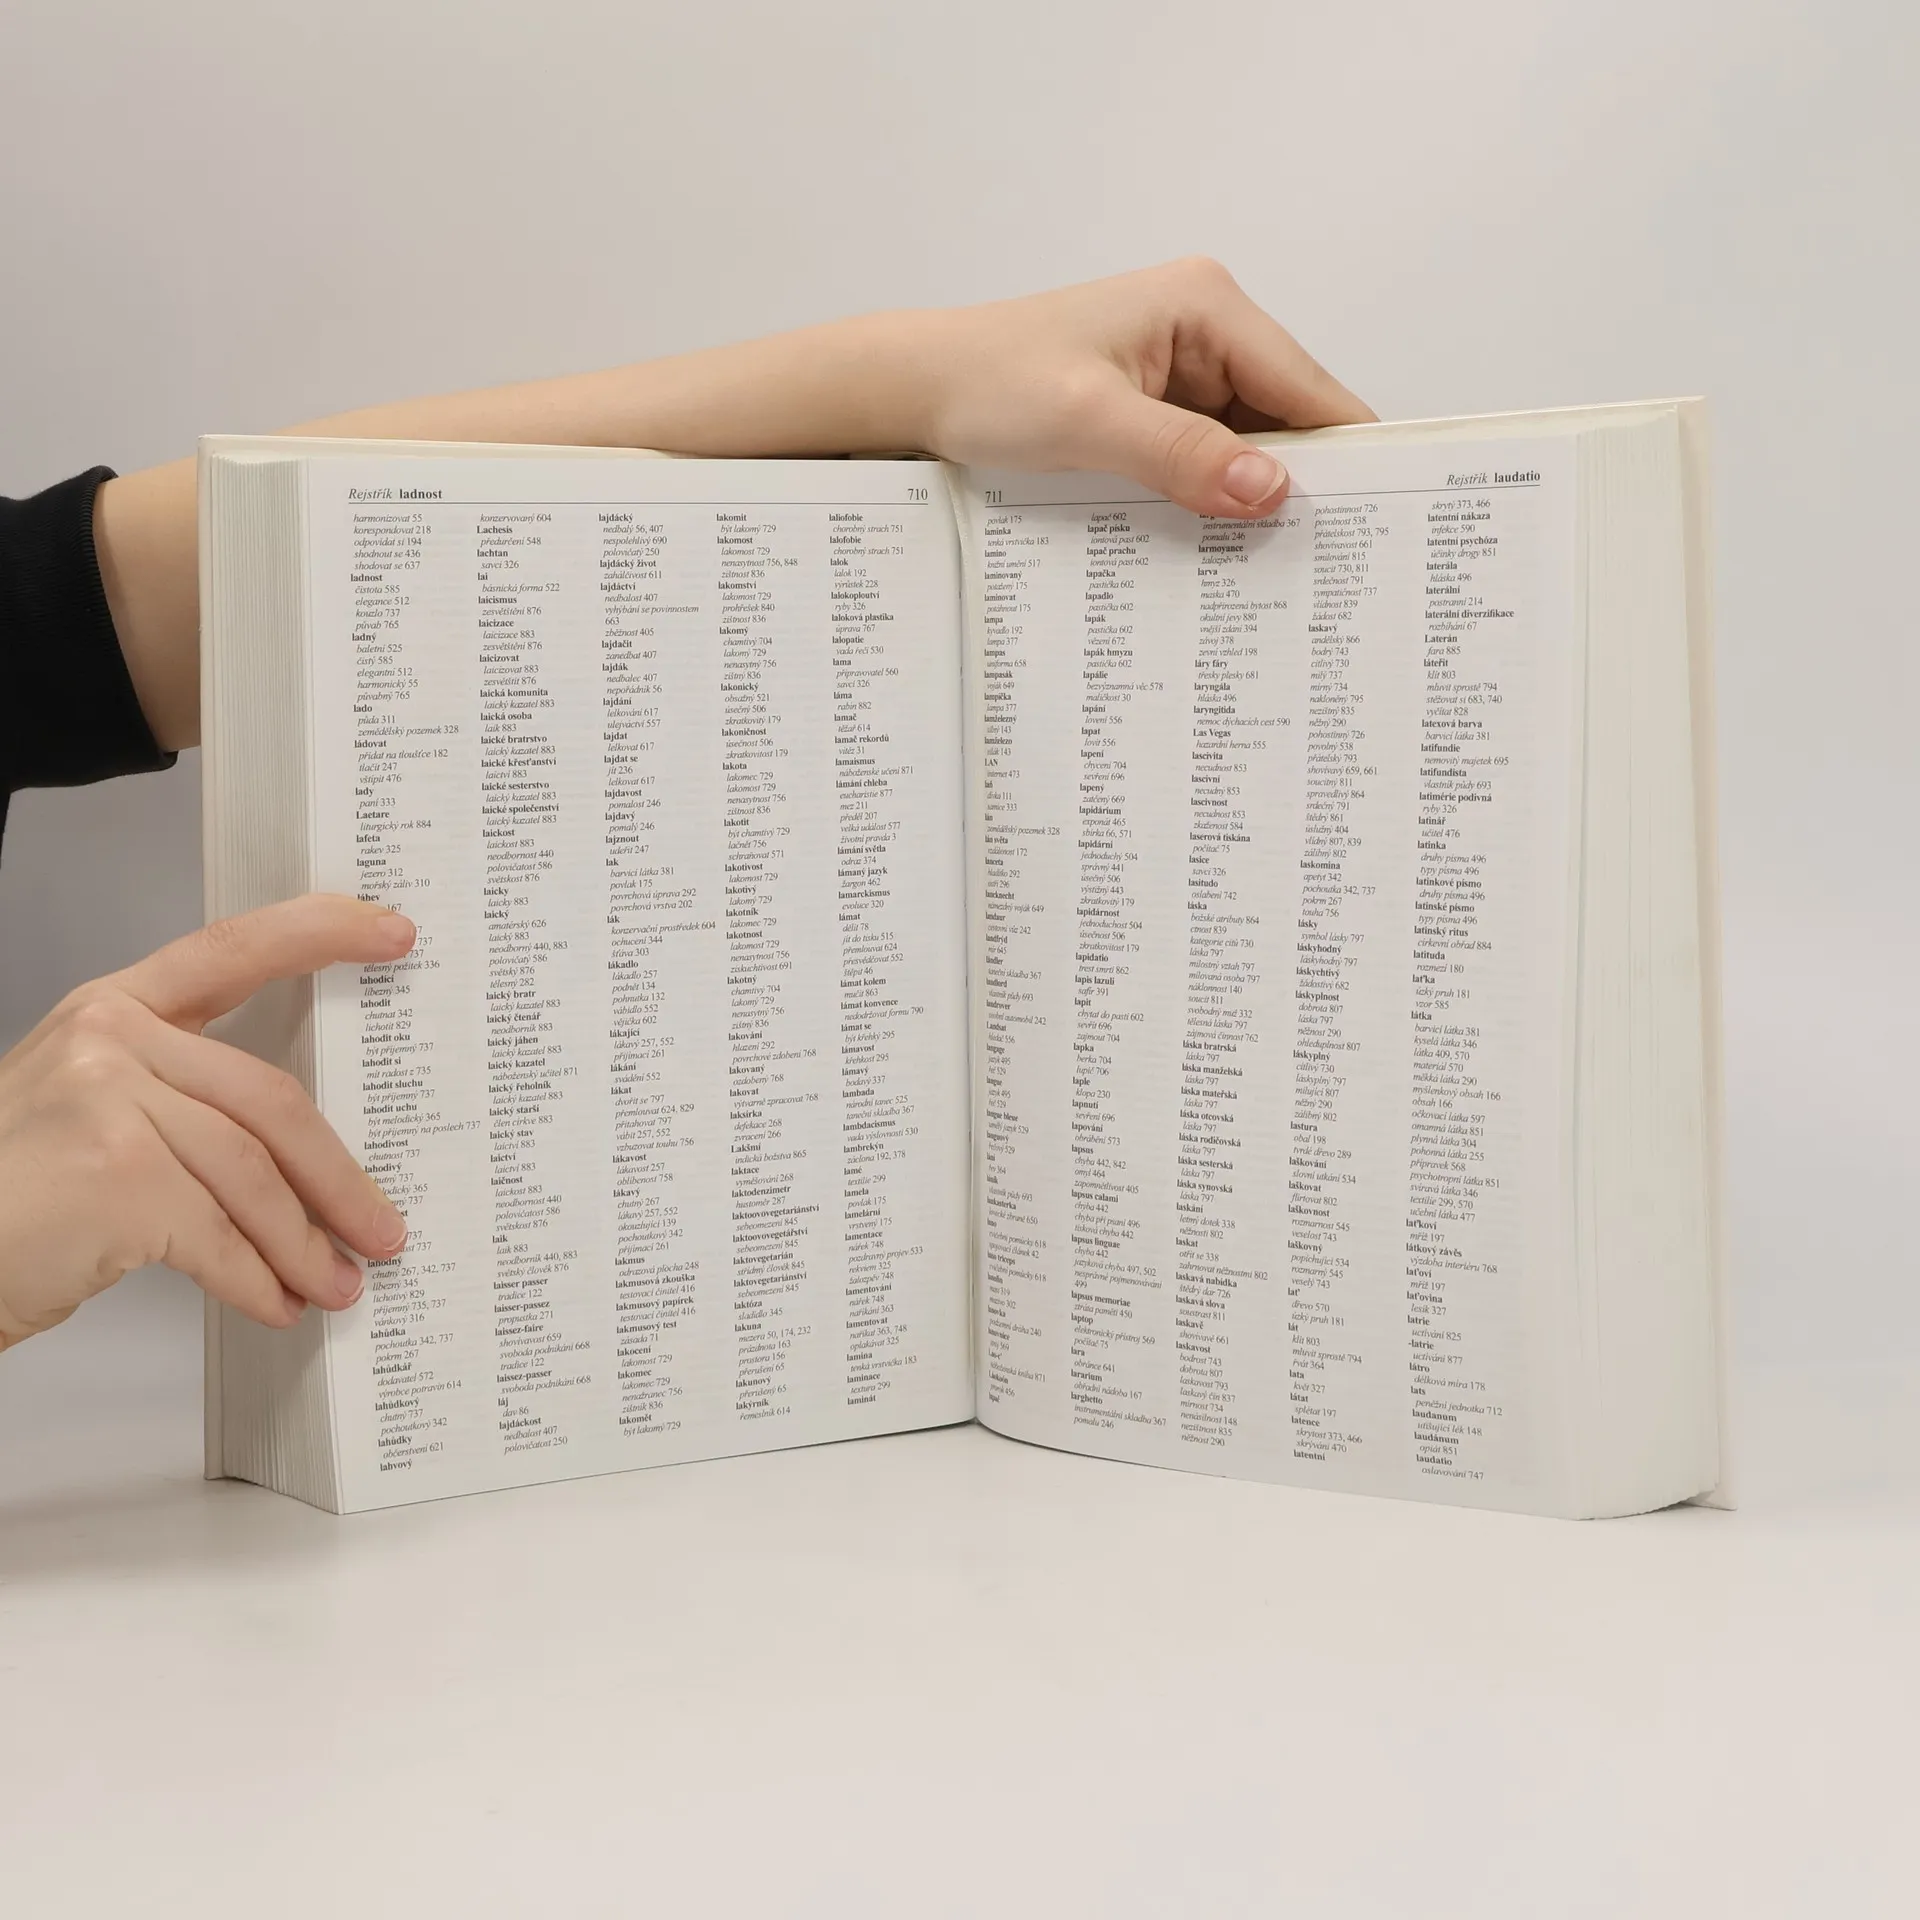 Rejstřík ladnost
710
harmonizovat 55
korespondovat 218
odpovídat si 194
shodnout se 436
shodovat se 637
ladnost
čistota 585
elegance 512
kouzlo 737
půvab 765
ladný
baletní 525
čistý 585
elegantní 512
harmonický 55
půvabný 765
lado
půda 311
zemědělský pozemek 328
ládovat
přidat na tloušťce 182
tlačit 247
vštípit 476
lady
paní 333
Laetare
liturgický rok 884
lafeta
rakev 325
laguna
jezero 312
mořský záliv 310
láhev
167
737
737
tělesný požitek 336
lahodící
líbezný 345
lahodit
chutnat 342
lichotit 829
lahodit oku
být příjemný 737
lahodit si
mít radost z 735
lahodit sluchu
být příjemný 737
lahodit uchu
být melodický 365
být příjemný na poslech 737
lahodivost
chutnost 737
lahodivý
737
365
737
737
737
lahodný
chutný 267, 342, 737
líbezný 345
lichotivý 829
příjemný 735, 737
vánkový 316
lahůdka
pochoutka 342, 737
pokrm 267
lahůdkář
dodavatel 572
výrobce potravin 614
lahůdkový
chutný 737
pochoutkový 342
lahůdky
občerstvení 621
lahvový
konzervovaný 604
Lachesis
předurčení 548
lachtan
savci 326
lai
básnická forma 522
laicismus
zesvětštění 876
laicizace
laicizace 883
zesvětštění 876
laicizovat
laicizovat 883
zesvětštit 876
laická komunita
laický kazatel 883
laická osoba
laik 883
laické bratrstvo
laický kazatel 883
laické křesťanství
laictví 883
laické sesterstvo
laický kazatel 883
laické společenství
laický kazatel 883
laickost
laickost 883
neodbornost 440
polovičatost 586
světskost 876
laicky
laicky 883
laický
amatérský 626
laický 883
neodborný 440, 883
polovičatý 586
světský 876
tělesný 282
laický bratr
laický kazatel 883
laický čtenář
neodborník 883
laický jáhen
laický kazatel 883
laický kazatel
náboženský učitel 871
laický řeholník
laický kazatel 883
laický starší
člen církve 883
laický stav
laictví 883
laictví
laictví 883
laičnost
laickost 883
neodbornost 440
polovičatost 586
světskost 876
laik
laik 883
neodborník 440, 883
světský člověk 876
laisser passer
tradice 122
laisser-passez
propustka 271
laissez-faire
shovívavost 659
svoboda podnikání 668
tradice 122
laissez-passer
svoboda podnikání 668
láj
dav 86
lajdáckost
nedbalost 407
polovičatost 250
lajdácký
nedbalý 56, 407
nespolehlivý 690
polovičatý 250
lajdácký život
zahálčivost 611
lajdáctví
nedbalost 407
vyhýbání se povinnostem
663
zběžnost 405
lajdačit
zanedbat 407
lajdák
nedbalec 407
nepořádník 56
lajdání
lelkování 617
ulejváctví 557
lajdat
lelkovat 617
lajdat se
jít 236
lelkovat 617
lajdavost
pomalost 246
lajdavý
pomalý 246
lajznout
udeřit 247
lak
barvicí látka 381
povlak 175
povrchová úprava 292
povrchová vrstva 202
lák
konzervační prostředek 604
ochucení 344
šťáva 303
lákadlo
lákadlo 257
podnět 134
pohnutka 132
vábidlo 552
vějička 602
lákající
lákavý 257, 552
přijímací 261
lákání
svádění 552
lákat
dvořit se 797
přemlouvat 624, 829
přitahovat 797
vábit 257, 552
vzbuzovat touhu 756
lákavost
lákavost 257
oblíbenost 758
lákavý
chutný 267
lákavý 257, 552
okouzlující 139
pochoutkový 342
přijímací 261
lakmus
odrazová plocha 248
lakmusová zkouška
testovací činitel 416
lakmusový papírek
testovací činitel 416
lakmusový test
zásada 71
lakocení
lakomost 729
lakomec
lakomec 729
nenažranec 756
zištník 836
lakomět
být lakomý 729
lakomit
být lakomý 729
lakomost
lakomost 729
nenasytnost 756, 848
zištnost 836
lakomství
lakomost 729
prohřešek 840
zištnost 836
lakomý
chamtivý 704
lakomý 729
nenasytný 756
zištný 836
lakonický
obsažný 521
úsečný 506
zkratkovitý 179
lakoničnost
úsečnost 506
zkratkovitost 179
lakota
lakomec 729
lakomost 729
nenasytnost 756
zištnost 836
lakotit
být chamtivý 729
lačnět 756
schraňovat 571
lakotivost
lakomost 729
lakotivý
lakomý 729
lakotník
lakomec 729
lakotnost
lakomost 729
nenasytnost 756
získuchtivost 691
lakotný
chamtivý 704
lakomý 729
nenasytný 756
zištný 836
lakování
hlazení 292
povrchové zdobení 768
lakovaný
ozdobený 768
lakovat
výtvarně zpracovat 768
laksírka
defekace 268
zvracení 266
Lakšmí
indická božstva 865
laktace
vyměšování 268
laktodenzimetr
hustoměr 287
laktoovovegetariánství
sebeomezení 845
laktoovovegetářství
sebeomezení 845
laktovegetarián
střídmý člověk 845
laktovegetariánství
sebeomezení 845
laktóza
sladidlo 345
lakuna
mezera 50, 174, 232
prázdnota 163
prostora 156
přerušení 65
lakunový
přerušený 65
lakýrník
řemeslník 614
laliofobie
chorobný strach 751
lalofobie
chorobný strach 751
lalok
lalok 192
výrůstek 228
lalokoploutví
ryby 326
laloková plastika
úprava 767
lalopatie
vada řeči 530
lama
připravovatel 560
savci 326
láma
rabín 882
lamač
těžař 614
lamač rekordů
vítěz 31
lamaismus
náboženské učení 871
lámání chleba
eucharistie 877
mez 211
předěl 207
velká událost 577
životní pravda 3
lámání světla
odraz 374
lámaný jazyk
žargon 462
lamarckismus
evoluce 320
lámat
dělit 78
jít do tisku 515
přemlouvat 624
přesvědčovat 552
štěpit 46
lámat kolem
mučit 863
lámat konvence
nedodržovat formu 790
lámat se
být křehký 295
lámavost
křehkost 295
lámavý
bodavý 337
lambada
národní tanec 525
taneční skladba 367
lambdacismus
vada výslovnosti 530
lambrekýn
záclona 192, 378
lamé
textilie 299
lamela
povlak 175
lamelární
vrstevný 175
lamentace
nářek 748
pozdravný projev 533
rekviem 325
žalozpěv 748
lamentování
nářek 748
naříkání 363
lamentovat
naříkat 363, 748
oplakávat 325
lamina
tenká vrstvička 183
laminace
textura 299
laminát
711
Rejstřík laudatio
povlak 175
laminka
tenká vrstvička 183
lamino
knižní umění 517
laminovaný
potažený 175
laminovat
potáhnout 175
lampa
kyvadlo 192
lampa 377
lampas
uniforma 658
lampasák
voják 649
lampička
lampa 377
lamželezný
silný 143
lamželezo
silák 143
LAN
internet 473
laň
dívka 111
samice 333
lán
zemědělský pozemek 328
lán světa
vzdálenost 172
lanceta
hladítko 292
ostří 296
lancknecht
námezdný voják 649
landaur
cestovní vůz 242
landfrýd
mír 645
ländler
taneční skladba 367
landlord
vlastník půdy 693
landrover
osobní automobil 242
Landsat
hledač 556
langage
jazyk 495
řeč 529
langue
jazyk 495
řeč 529
langue bleue
lapač 602
lapač písku
iontová past 602
lapač prachu
iontová past 602
lapačka
pastička 602
lapadlo
pastička 602
lapák
pastička 602
vězení 672
lapák hmyzu
pastička 602
lapálie
bezvýznamná věc 578
maličkost 30
lapání
lovení 556
lapat
lovit 556
lapení
chycení 704
sevření 696
lapený
zatčený 669
lapidárium
exponát 465
sbírka 66, 571
lapidární
jednoduchý 504
správný 441
úsečný 506
výstižný 443
zkratkovitý 179
lapidárnost
jednoduchost 504
úsečnost 506
zkratkovitost 179
lapidatio
trest smrti 862
lapis lazuli
safír 391
lapit
chytat do pasti 602
sevřít 696
zajmout 704
lapka
berka 704
lupič 706
laple
klopa 230
lapnutí
sevření 696
lapování
obrábění 573
lapsus
chyba 442, 842
omyl 464
zapomnětlivost 405
lapsus calami
chyba 442
chyba při psaní 496
tisková chyba 442
lapsus linguae
chyba 442
jazyková chyba 497, 502
nesprávné pojmenovávání
499
lapsus memoriae
ztráta paměti 450
laptop
elektronický přístroj 569
počítač 75
lara
obránce 641
lararium
obřadní nádoba 167
larghetto
instrumentální skladba 367
pomalu 246
instrumentální skladba 367
pomalu 246
larmoyance
žalozpěv 748
larva
hmyz 326
maska 470
nadpřirozená bytost 868
okultní jevy 880
vnější zdání 394
závoj 378
zevní vzhled 198
láry fáry
třesky plesky 681
laryngála
hláska 496
laryngitida
nemoc dýchacích cest 590
Las Vegas
hazardní herna 555
lascivita
necudnost 853
lascivní
necudný 853
lascivnost
necudnost 853
zkaženost 584
laserová tiskána
počítač 75
lasice
savci 326
lasitudo
oslabení 742
láska
božské atributy 864
ctnost 839
kategorie citů 730
láska 797
milostný vztah 797
milovaná osoba 797
náklonnost 140
soucit 811
svobodný muž 332
tělesná láska 797
zájmová činnost 762
láska bratrská
láska 797
láska manželská
láska 797
láska mateřská
láska 797
láska otcovská
láska 797
láska rodičovská
láska 797
láska sesterská
láska 797
láska synovská
láska 797
laskání
letmý dotek 338
něžnosti 802
laskat
otřít se 338
zahrnovat něžnostmi 802
laskavá nabídka
štědrý dar 726
laskavá slova
soustrast 811
laskavě
shovívavě 661
laskavost
bodrost 743
dobrota 807
laskavost 793
laskavý čin 837
mírnost 734
nenásilnost 148
nezištnost 835
něžnost 290
pohostinnost 726
povolnost 538
přátelskost 793, 795
shovívavost 661
smilování 815
soucit 730, 811
srdečnost 791
sympatičnost 737
vlídnost 839
žádost 682
laskavý
andělský 866
bodrý 743
citlivý 730
milý 737
mírný 734
nakloněný 795
nezištný 835
něžný 290
pohostinný 726
povolný 538
přátelský 793
shovívavý 659, 661
soucitný 811
spravedlivý 864
srdečný 791
štědrý 861
úslužný 404
vlídný 807, 839
zálibný 802
laskomina
apetyt 342
pochoutka 342, 737
pokrm 267
touha 756
lásky
symbol lásky 797
láskyhodný
láskyhodný 797
láskychtivý
žádostivý 682
láskyplnost
dobrota 807
láska 797
něžnost 290
ohleduplnost 807
láskyplný
citlivý 730
láskyplný 797
milující 807
něžný 290
zálibný 802
lastura
obal 198
tvrdé dřevo 289
laškování
slovní utkání 534
laškovat
flirtovat 802
laškovnost
rozmarnost 545
veselost 743
laškovný
popichující 534
rozmarný 545
veselý 743
lať
dřevo 570
úzký pruh 181
lát
klít 803
mluvit sprostě 794
řvát 364
lata
květ 327
látat
splétat 197
latence
skrytost 373, 466
skrývání 470
latentní
skrytý 373, 466
latentní nákaza
infekce 590
latentní psychóza
účinky drogy 851
laterála
hláska 496
laterální
postranní 214
laterální diverzifikace
rozbíhání 67
Laterán
fara 885
láteřit
klít 803
mluvit sprostě 794
stěžovat si 683, 740
vyčítat 828
latexová barva
barvicí látka 381
latifundie
nemovitý majetek 695
latifundista
vlastník půdy 693
latimérie podivná
ryby 326
latinář
učitel 476
latinka
druhy písma 496
typy písma 496
latinkové písmo
druhy písma 496
latinské písmo
typy písma 496
latinský ritus
církevní obřad 884
latituda
rozmezí 180
laťka
úzký pruh 181
vzor 585
látka
barvicí látka 381
kyselá látka 346
látka 409, 570
materiál 570
měkká látka 290
myšlenkový obsah 166
obsah 166
očkovací látka 597
omamná látka 851
plynná látka 304
pohonná látka 255
přípravek 568
psychotropní látka 851
svíravá látka 346
textilie 299, 570
učební látka 477
laťkoví
mříž 197
látkový závěs
výzdoba interiéru 768
laťoví
mříž 197
laťovina
lexik 327
latrie
uctívání 825
-latrie
uctívání 877
látro
délková míra 178
lats
peněžní jednotka 712
laudanum
utišující lék 148
laudánum
opiát 851
laudatio
oslavování 747